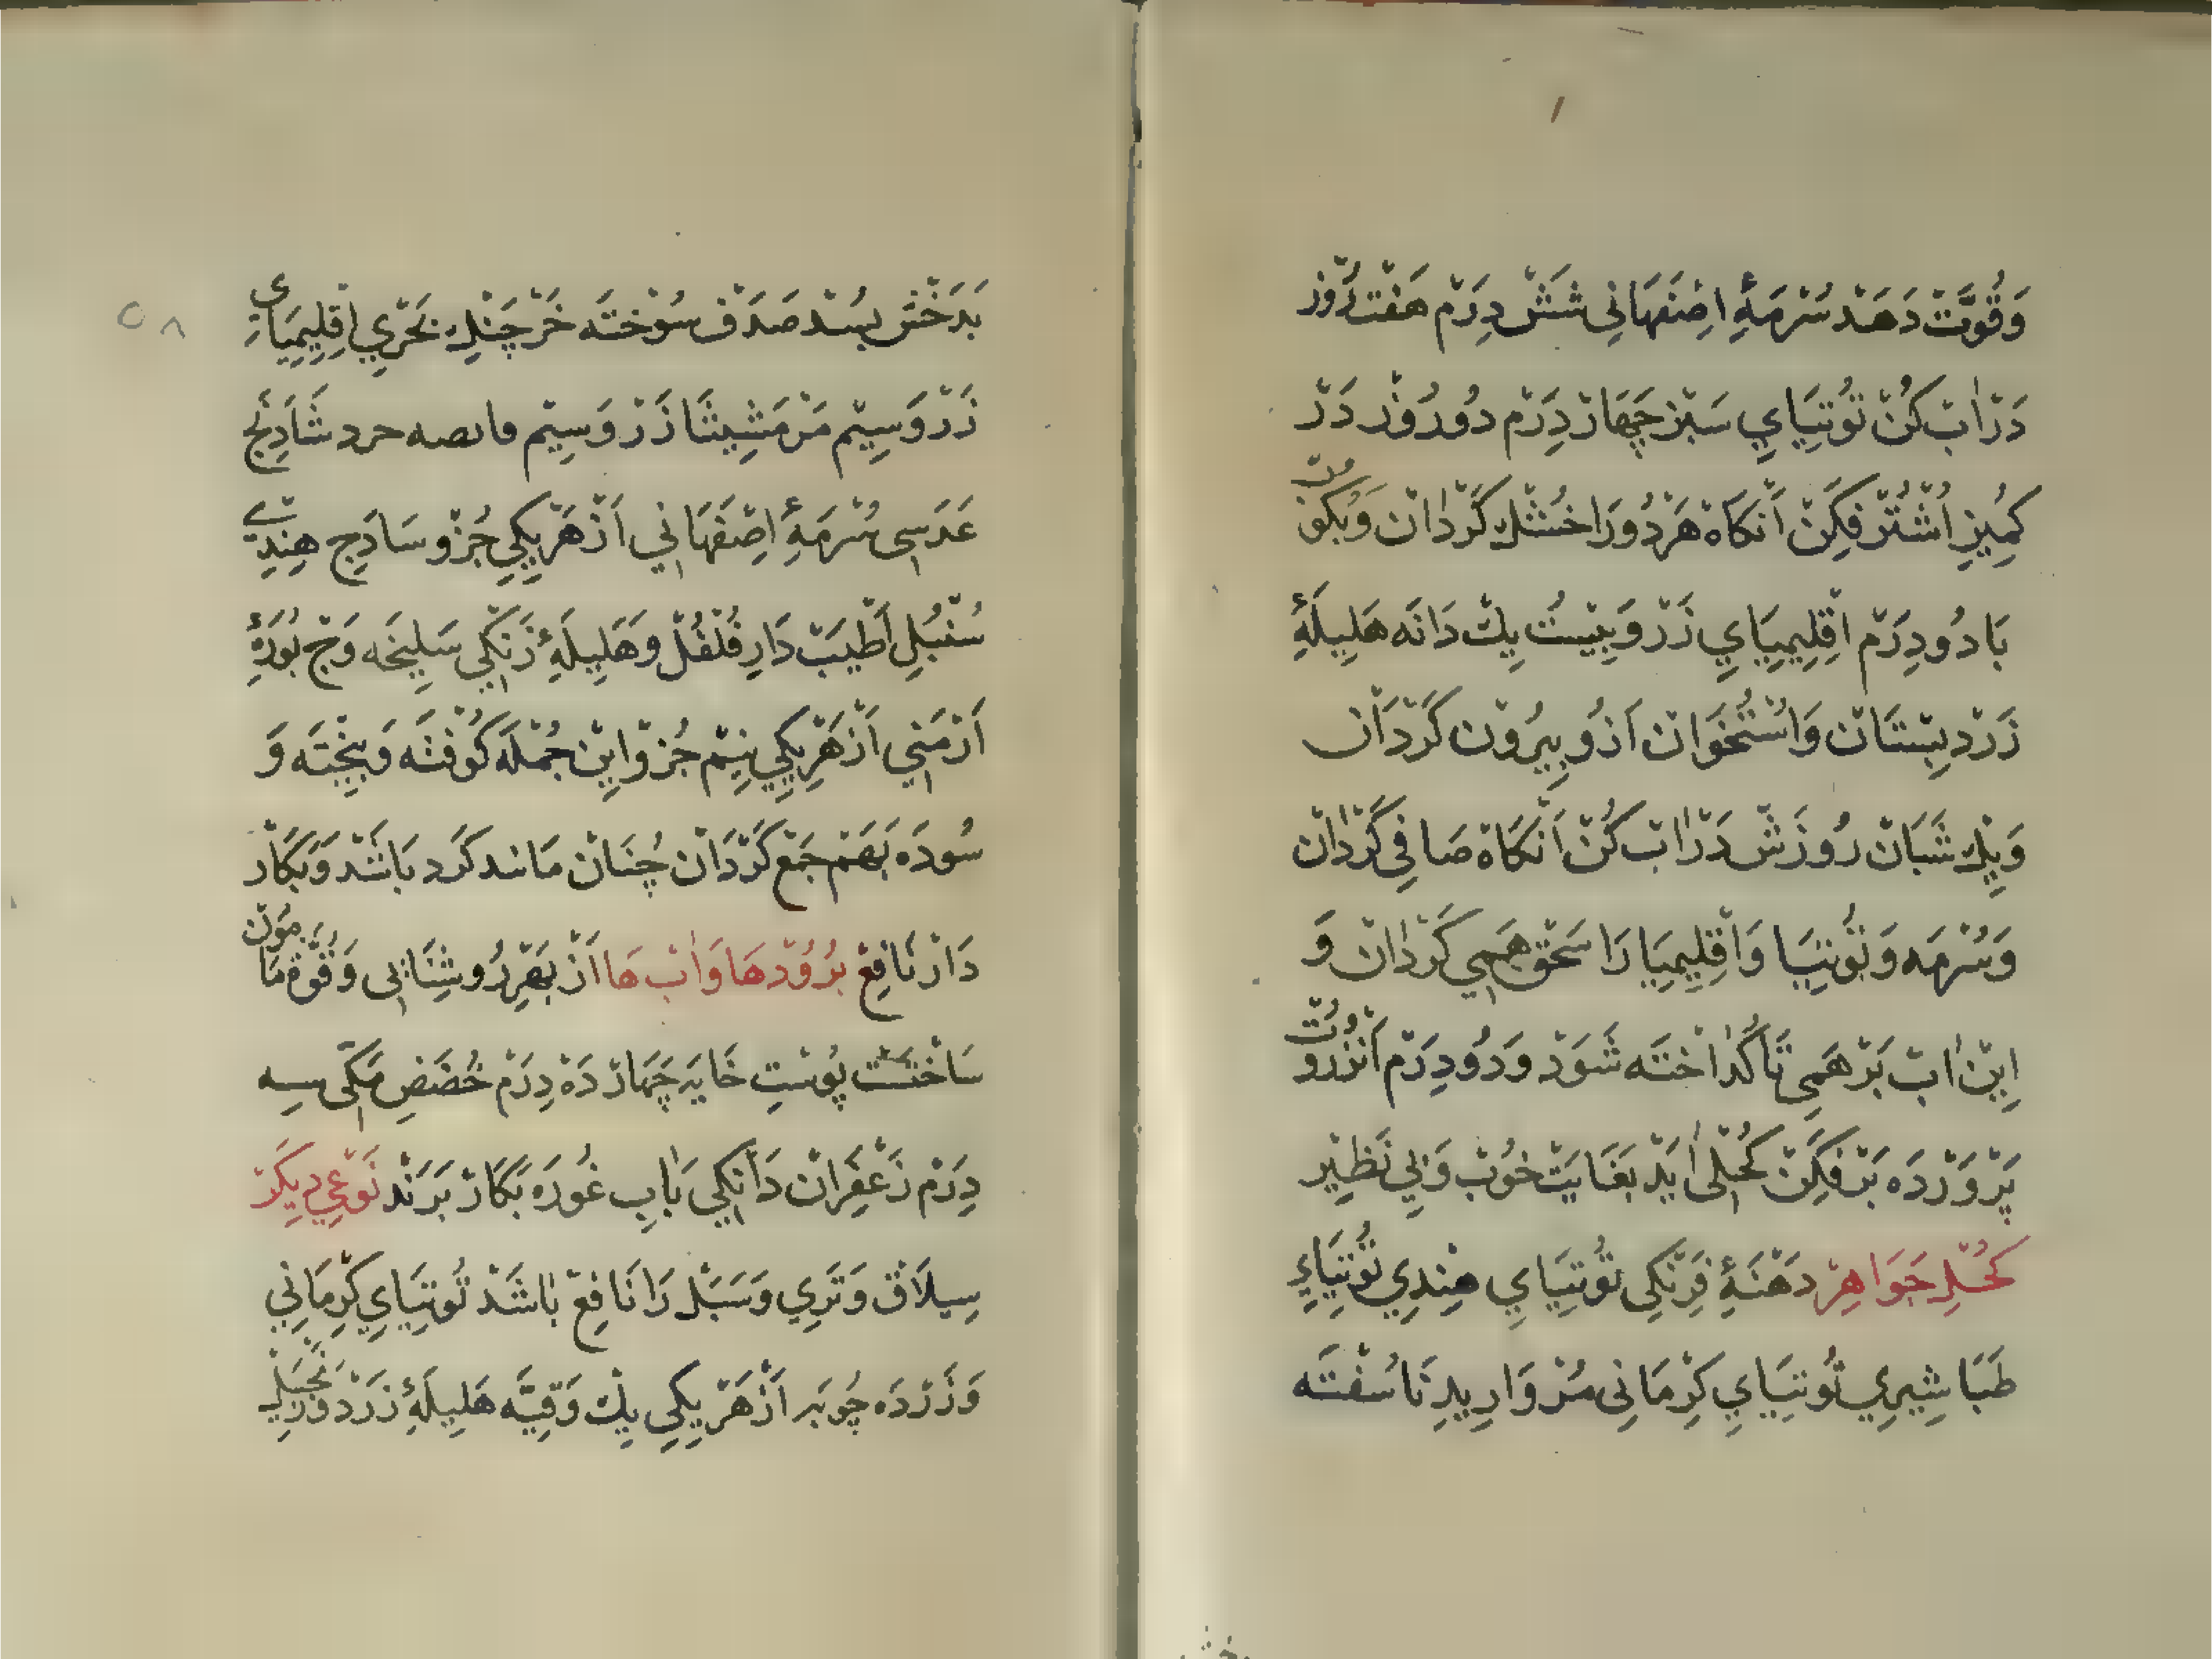 وَقُوَّتْ دَهَدْ سُرْمَۀِ اِصْفَهَانِی شَشْ دِرَمْ هَفْت رُوْز
دَرْ اٰبْ کُنْ تُوْتِیَايِ سَبْز چَهَارْ دِرَمْ دُو رُوْز دَرْ
کُمِیزِ اُشْتُرْ فِکَنْ اَنْکَاهْ هَرْدُو رَا خُشْك کَرْدٰانْ وَبِکُوْبْ
بَا دُو دِرَمْ اِقْلِیمِیَايِ زَرْ وَبِیْسْتُ یِكْ دَانَه هَلِیلَۀِ
زَرْد بِسْتَانْ وَاسْتُخْوَانْ اَزُو بِیرُوْن کَرْدَاْن
وَیِكْ شَبَانْ رُوزَشْ دَرْ اٰبْ کُنْ اَنْکَاهْ صَافِی کَرْدٰانْ
وَسُرْمَه وَتُوْتِیَا وَاِقْلِیمِیَا رَا سَحْق هَمِی کَرْدٰانْ وَ
اِیْنْ اٰبْ بَرْ هَمِی تَا کُدٰاخْتَه شَوَدْ وَدُو دِرَمْ اَنْزَرُوْتْ
پَرْوَرْدَه بَرْ فِکَنْ کُحْلِی اٰیَدْ بَغَایَتْ خُوبْ وَبِی نَظِیْر
کُحْلِ جَوَاهِرْ دَهْنَۀِ فِرَنْکِی تُوتِیَايِ هِنْدِي تُوتِیَاءِ
طَبَاشِیرِي تُوتِیَايِ کِرْمَانِی مُرْوَارِیدِ نَاسُفْتَه
بَدَخْش بُسَد صَدَف سُوْخْتَه خَرْچَنْكِ بَحْرِي اِقْلِیمِیَايِ
زَرْ وَسِیْم مَرْمَشِیشَا زَرْ وَسِیْم شَادَنْج
عَدَسِی سُرْمَۀِ اِصْفَهَانِي اَزْ هَرْ یِکِي جُزْو سَاذَج هِنْدِيْ
سُنْبُلِ اَطْیَبْ دَارِ فُلْفُلْ وَهَلِیلَۀِ زَنْکِي سَلِیخَه وَجْ بُورَۀِ
اَرْمَنِي اَزْ هَرْ یِکِي نِیْم جُزْ وَاِیْنْ جُمْلَه کُوْفْتَه وَبِیْخْتَه وَ
سُودَه بَهَمْ جَمْع کَرْدَانْ چُنَانْ مَانند کَرْد بَاشَدْ وَبَکَارْ
دَارْ نَافِعْ بَرُوْدْهَا وَاٰبْ هَا اَزْ بَهْرِ رُوشِنَایِی وَقُوَّة مَا مَوْنْ
سَاخْتَسْت پُوسْتِ خَایَه چَهَارْ دَهْ دِرَمْ حُضَضِ مَکِّی سِه
دِرَمْ زَعْفَرَانْ دَانْکِي بَاٰبِ غُورَه بَکَارْ بَرَنْد نَوْعِي دِیکَرْ
سِیلَاقْ وَتَرِي وَسَبَلْ رَا نَافِعْ بَاشَدْ تُوتِیَايِ کِرْمَانِي
وَزَرْدَه چُوبَه اَزْ هَرْ یِکِي یِكْ وَقِیَّه هَلِیلَۀِ زَرْد وَزَنْجَبِیلْ